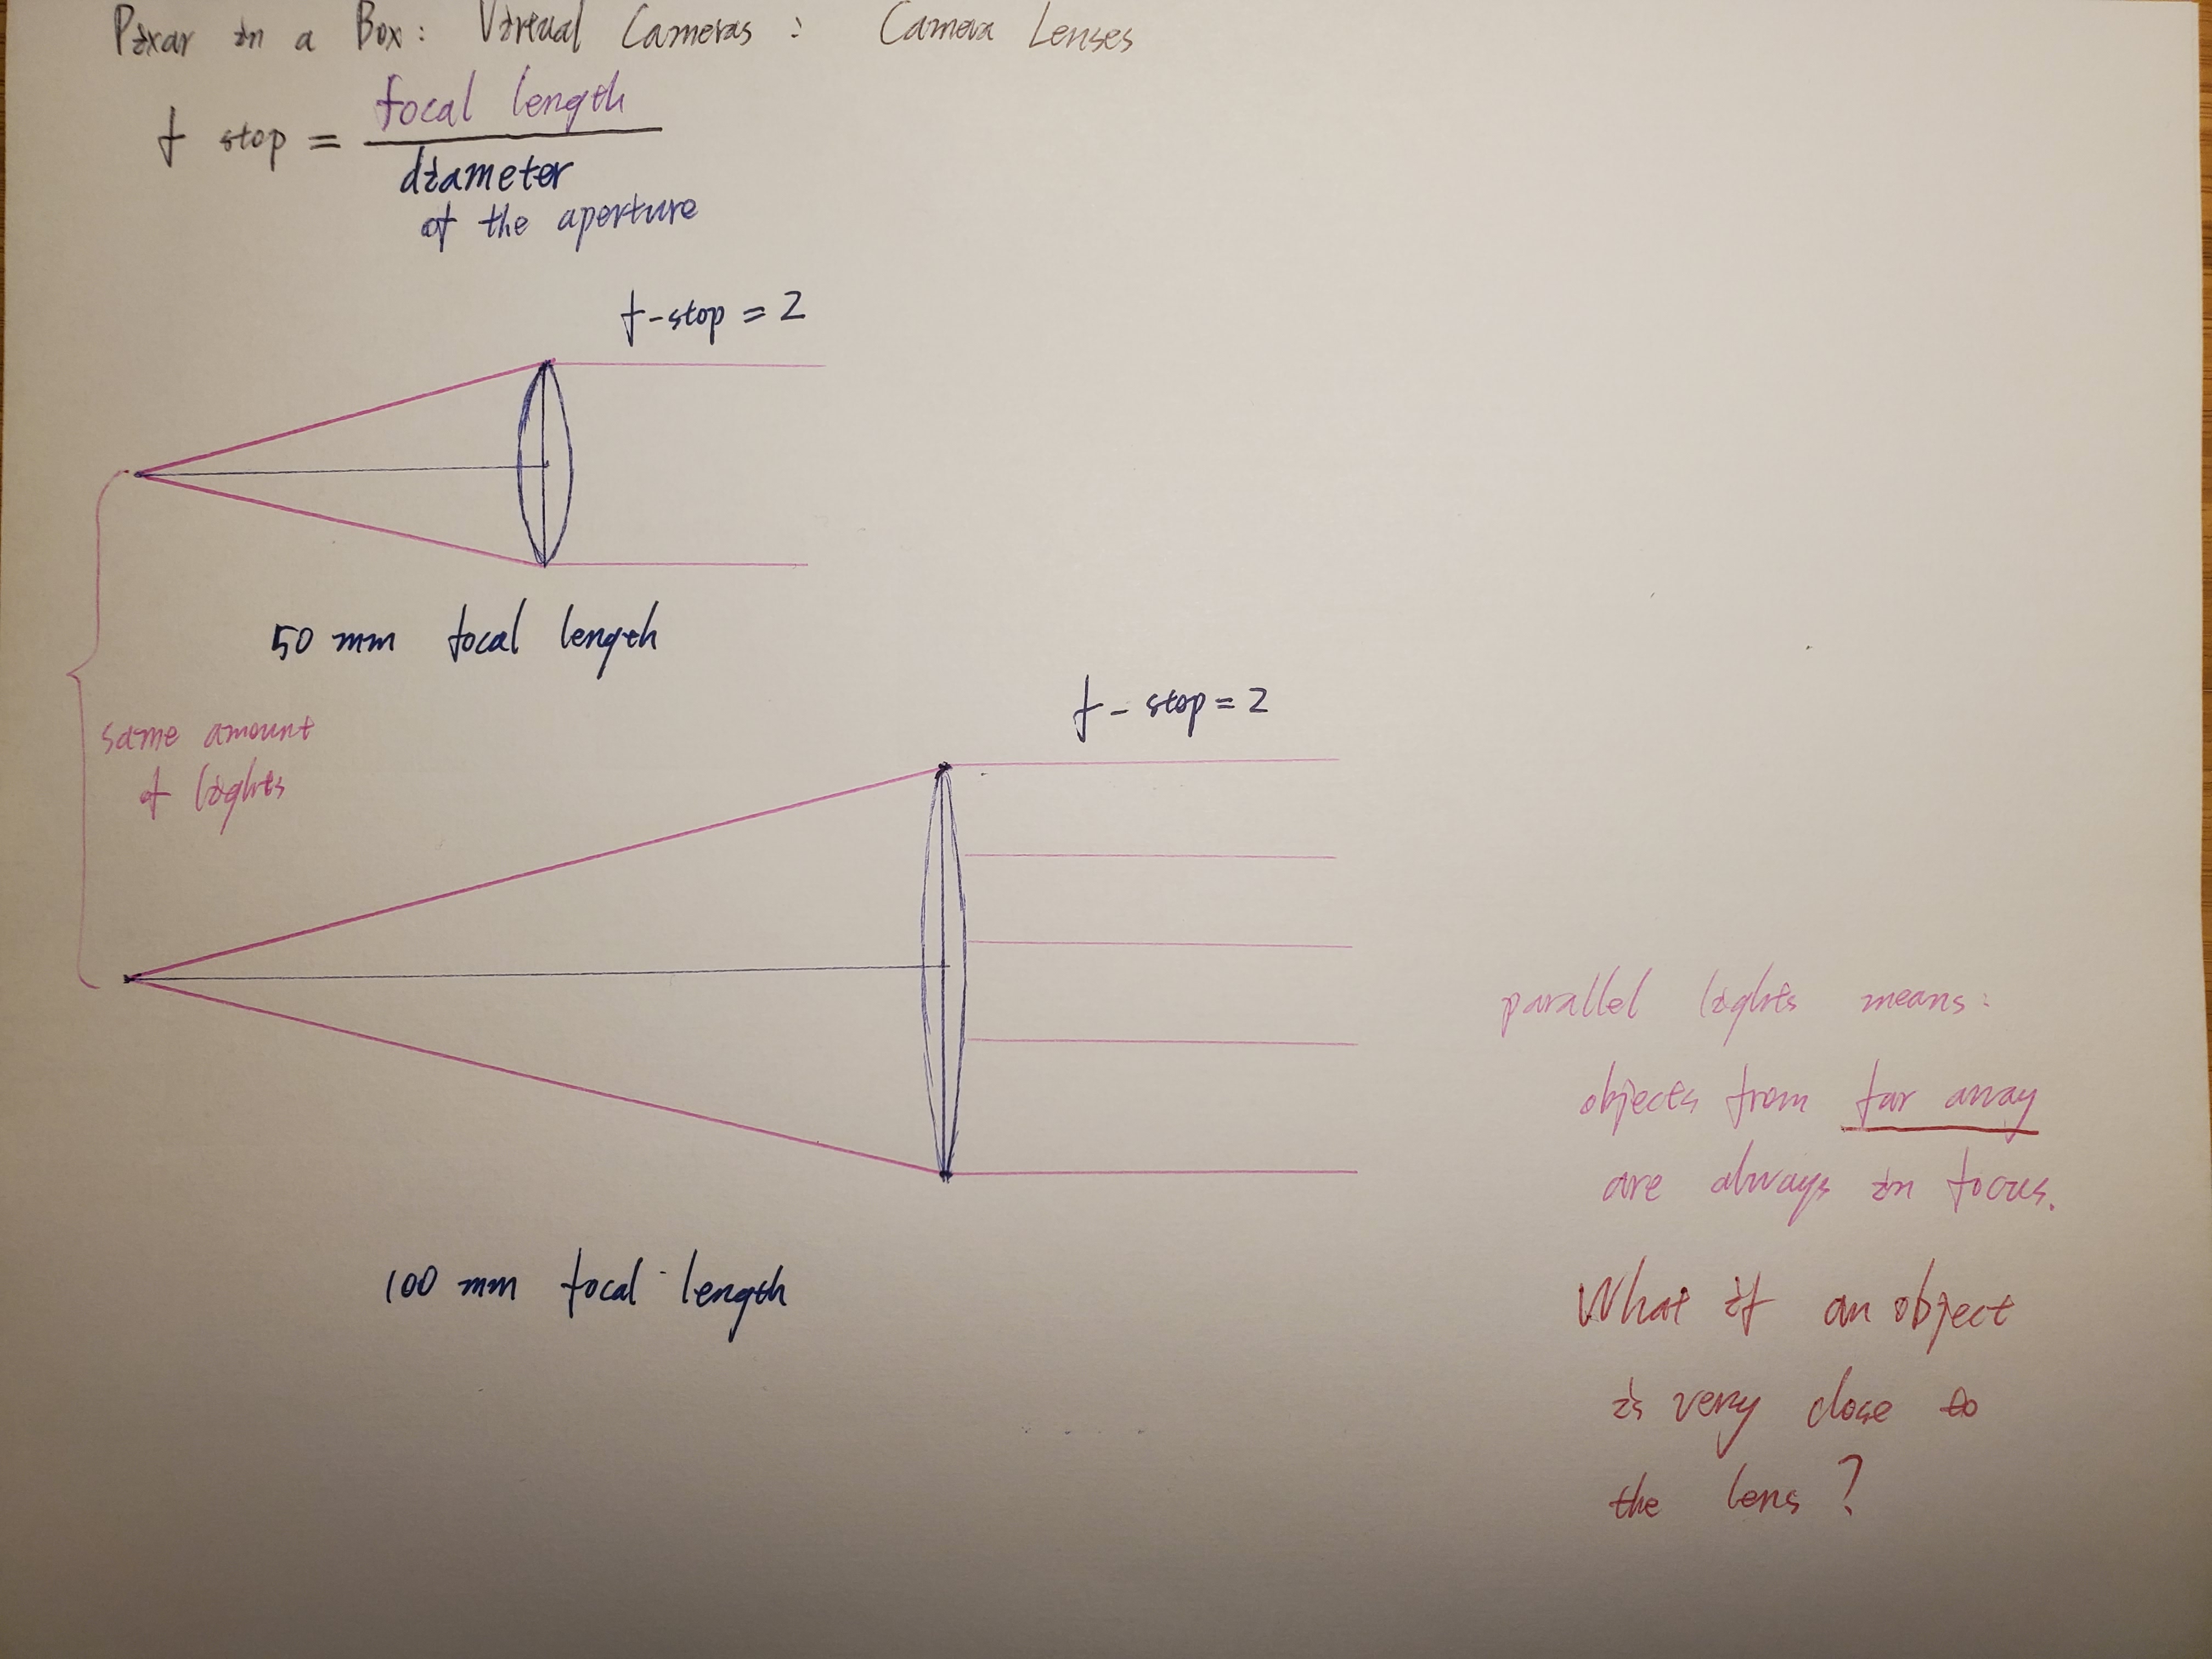 Pixar in a Box: Virtual Cameras: Camera Lenses
f stop = focal length
diameter
of the aperture
f-stop = 2
50 mm focal length
same amount
of lights
f-stop = 2
100 mm focal length
parallel lights means:
objects from far away
are always in focus.
What if an object
is very close to
the lens?